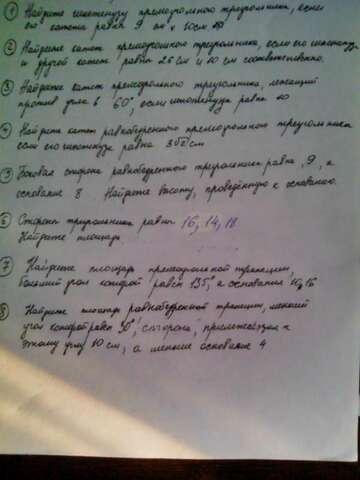 ① Найдите гипотенузу прямоугольного треугольника, если
его катета равна 9 см и 10см
② Найдите катет прямоугольного треугольника, если его гипотенуза
и другой катет равны 25 см и 10 см соответственно.
③ Найдите катет прямоугольного треугольника, лежащий
против угла в 60°, если гипотенуза равна 10
④ Найдите катет равнобедренного прямоугольного треугольника
если его гипотенуза равна 3√2 см
⑤ Боковая сторона равнобедренного треугольника равна 9, а
основание 8 Найдите высоту, проведённую к основанию.
⑥ Стороны треугольника равны 16, 14, 18
Найдите площадь
⑦ Найдите площадь прямоугольной трапеции,
больший угол которой равен 135°, а основания 10, 16
⑧ Найдите площадь равнобедренной трапеции, меньший
угол которой равен 30°, сторона, прилежащая к
этому углу 10 см, а меньшее основание 4